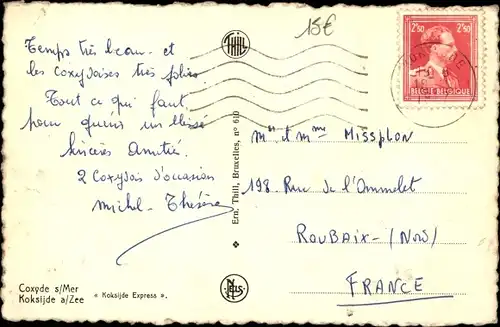 15€
THILL
Temps très beau et
les coxydoises très jolies
Tout ce qui faut
pour guérir un blessé
Sincères Amitié.
2 Coxydois d'occasion
Michel - Thérèse
2F50 2F50
BELGIE BELGIQUE
Ern. Thill, Bruxelles, n° 610
Mr et Mme Missplon
198. Rue de l'Ommelet
ROUBAIX - (NORD)
FRANCE
NELS
Coxyde s/Mer
Koksijde a/Zee
« Koksijde Express ».